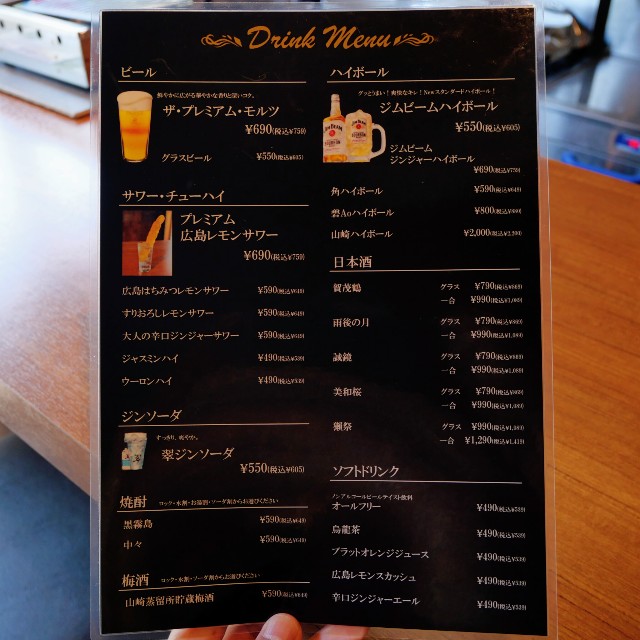 Drink Menu
ビール
ザ・プレミアム・モルツ
¥690(税込¥759)
グラスビール ¥550(税込¥605)
サワー・チューハイ
プレミアム
広島レモンサワー
¥690(税込¥759)
広島はちみつレモンサワー ¥590(税込¥649)
すりおろしレモンサワー ¥590(税込¥649)
大人の辛口ジンジャーサワー ¥590(税込¥649)
ジャスミンハイ ¥490(税込¥539)
ウーロンハイ ¥490(税込¥539)
ジンソーダ
すっきり、爽やか。
翠ジンソーダ
¥550(税込¥605)
焼酎 ロック・水割・お湯割・ソーダ割からお選びください
黒霧島 ¥590(税込¥649)
中々 ¥590(税込¥649)
梅酒 ロック・水割・ソーダ割からお選びください
山崎蒸留所貯蔵梅酒 ¥590(税込¥649)
ハイボール
グッとうまい！爽快なキレ！Newスタンダードハイボール！
ジムビームハイボール
¥550(税込¥605)
ジムビーム
ジンジャーハイボール
¥690(税込¥759)
角ハイボール ¥590(税込¥649)
碧Aoハイボール ¥800(税込¥880)
山崎ハイボール ¥2,000(税込¥2,200)
日本酒
賀茂鶴 グラス ¥790(税込¥869)
一合 ¥990(税込¥1,089)
雨後の月 グラス ¥790(税込¥869)
一合 ¥990(税込¥1,089)
誠鏡 グラス ¥790(税込¥869)
一合 ¥990(税込¥1,089)
美和桜 グラス ¥790(税込¥869)
一合 ¥990(税込¥1,089)
獺祭 グラス ¥990(税込¥1,089)
一合 ¥1,290(税込¥1,419)
ソフトドリンク
ノンアルコールビールテイスト飲料
オールフリー ¥490(税込¥539)
烏龍茶 ¥490(税込¥539)
ブラッドオレンジジュース ¥490(税込¥539)
広島レモンスカッシュ ¥490(税込¥539)
辛口ジンジャーエール ¥490(税込¥539)